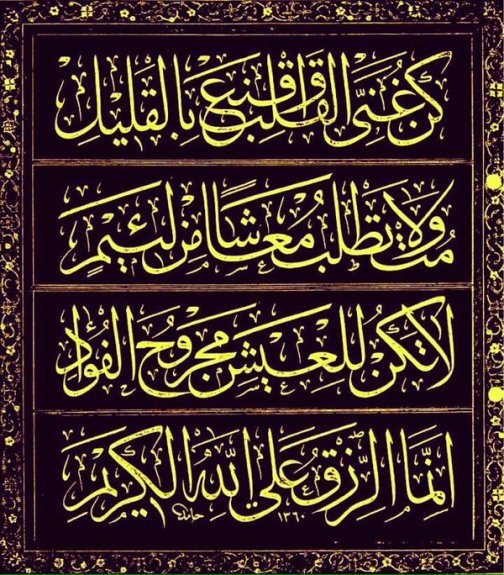 كُنْ غَنِيَّ القَلْبِ وَاقْنَعْ بِالقَلِيلِ
مُتْ وَلَا تَطْلُبْ مَعَاشًا مِنْ لَئِيمٍ
لَا تَكُنْ لِلْعَيْشِ مَجْرُوحَ الفُؤَادِ
اِنَّمَا الرِّزْقُ عَلَى اللّٰهِ الكَرِيمِ
حامد ١٣٦٠